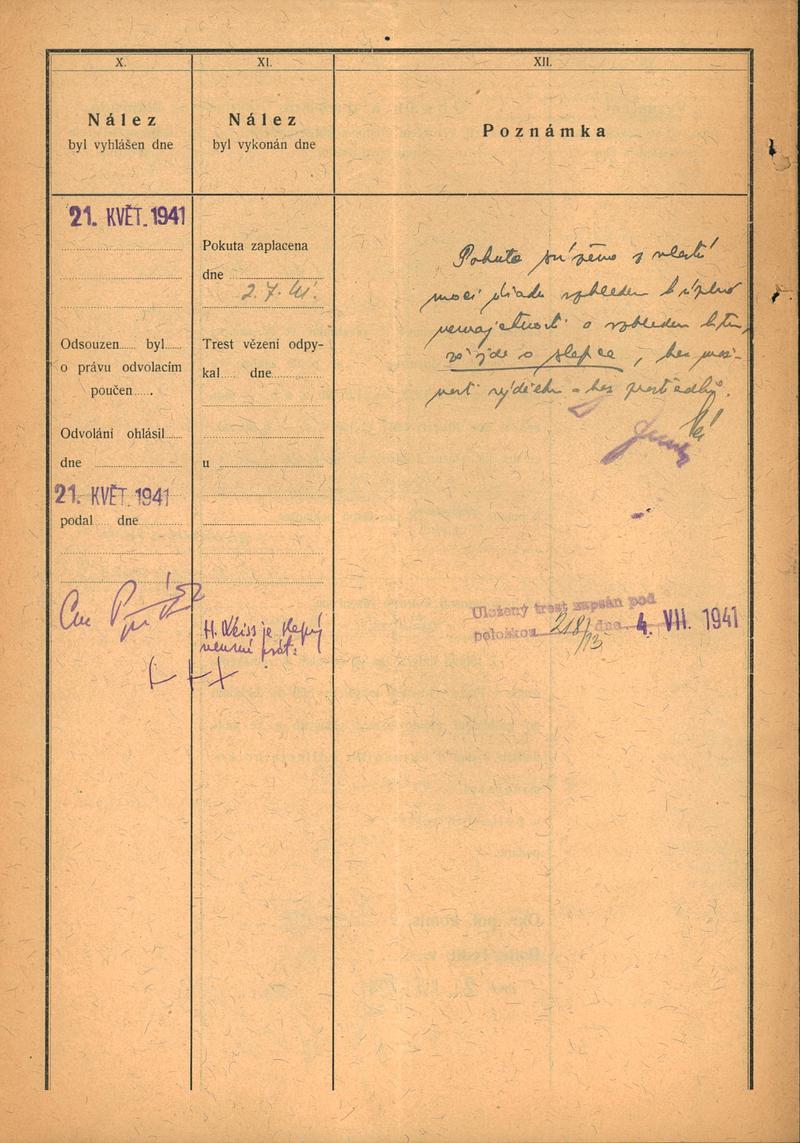 X.
Nález
byl vyhlášen dne
21. KVĚT. 1941
Odsouzen...... byl......
o právu odvolacím
poučen......
Odvolání ohlásil......
dne
21. KVĚT 1941
podal dne
XI.
Nález
byl vykonán dne
Pokuta zaplacena
dne
2. 7. 41.
Trest vězení odpy-
kal..... dne
u
H. Weiss je slepý
+++
XII.
Poznámka
Pokuta z vlastní
moci úřadu vzhledem k úplné
nemajetnosti a vzhledem k tomu,
že jde o slepce, bez mož-
nosti výdělku a bez prostředků.
Uložený trest zapsán pod
položkou 218/13 dne 4. VII. 1941